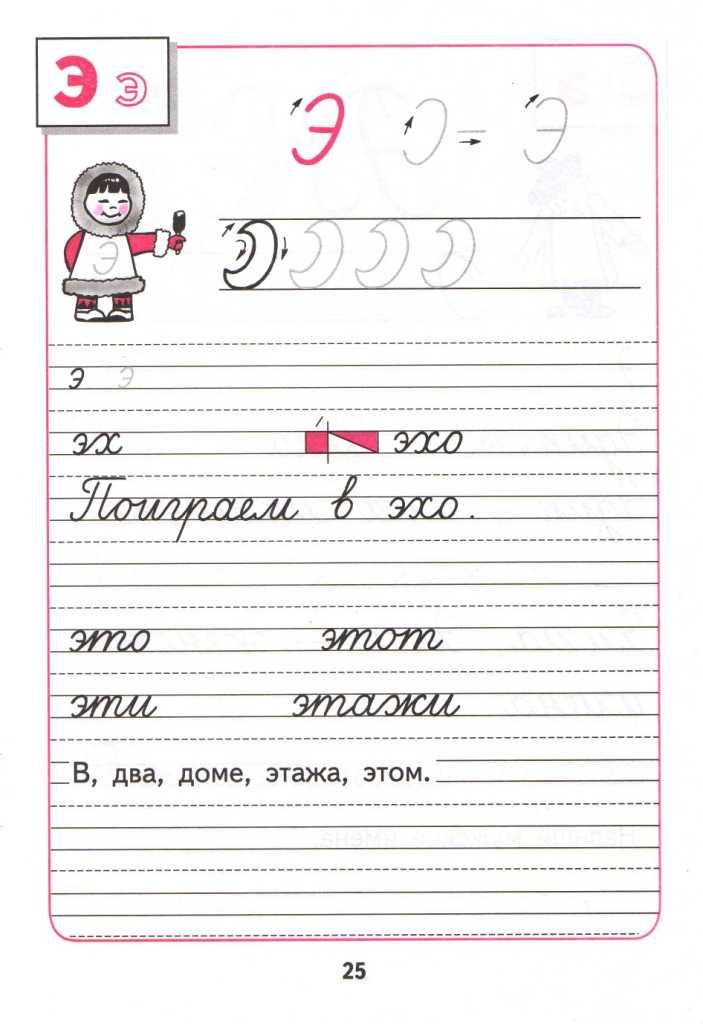 Э э
Э Э = Э
Э
э э
эх эхо
Поиграем в эхо.
это этот
эти этажи
В, два, доме, этажа, этом.
25